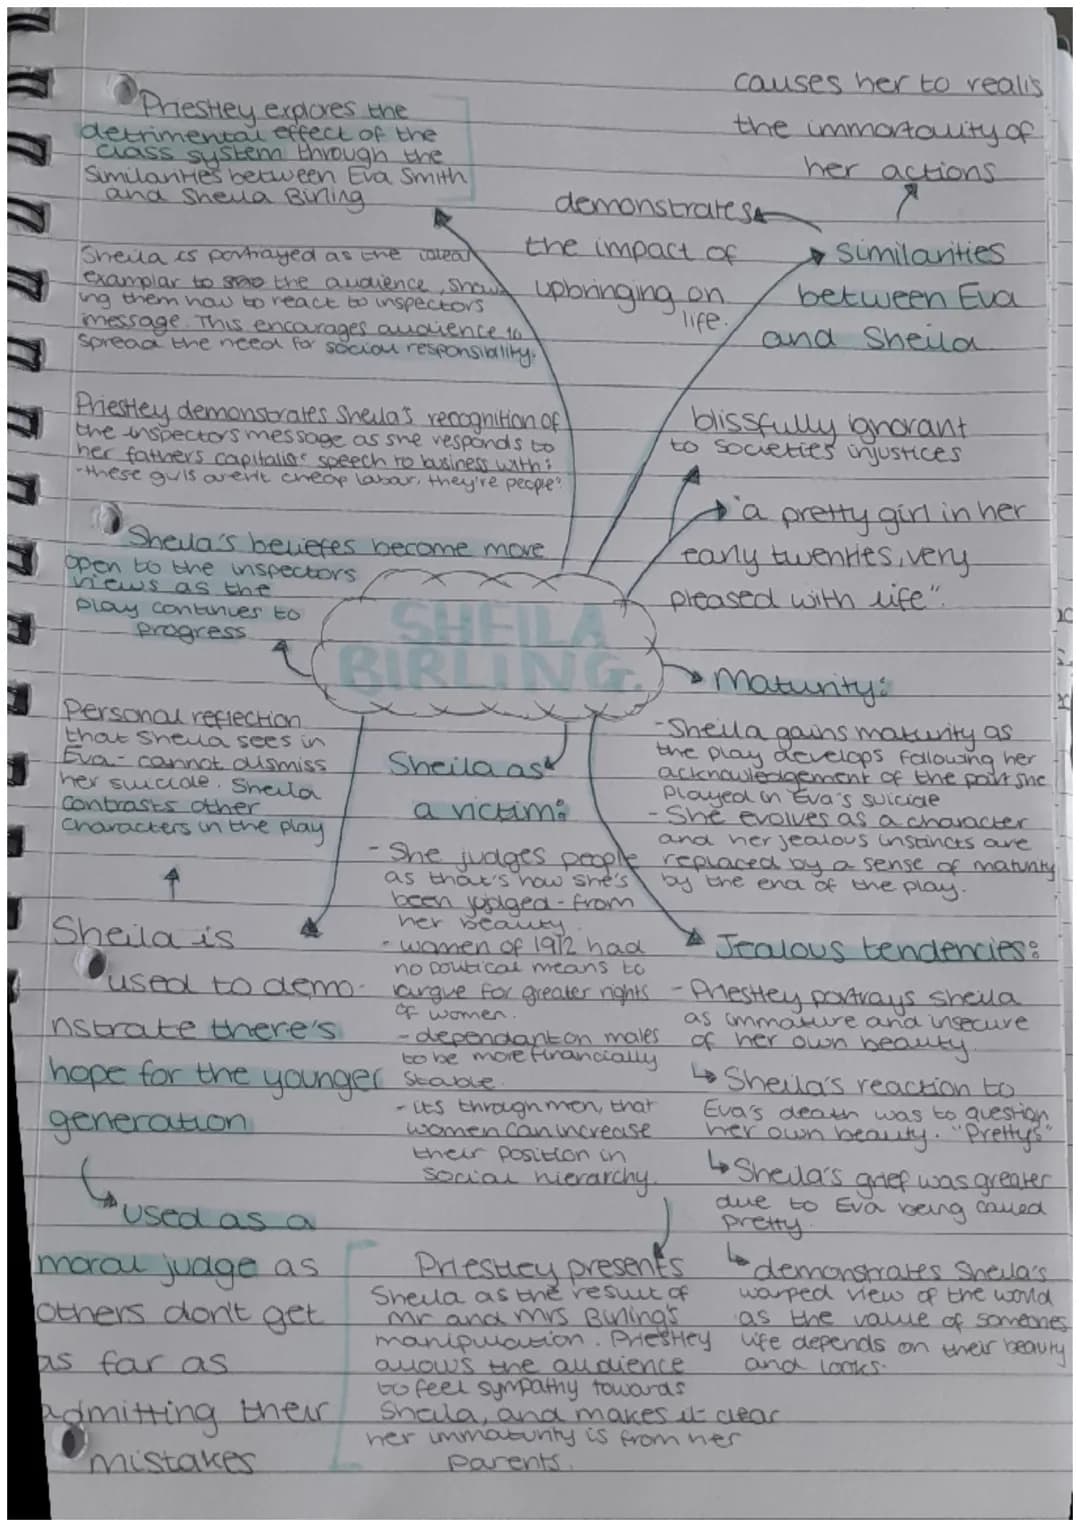 Priestley explores the
detrimental effect of the
class system through the
similarities between Eva Smith
and Sheila Birling
Sheila is portrayed as the ideal
examplar to the audience, show
ing them how to react to inspectors
message. This encourages audience to
spread the need for social responsibility.
Priestley demonstrates Sheila's recognition of
the inspectors message as she responds to
her fathers capitalist speech to business with:
"these girls aren't cheap labour, they're people"
Sheila's beliefes become more
open to the inspectors
views as the
play continues to
progress
causes her to realis
the immortality of
her actions
demonstrates
the impact of
upbringing on
life.
Similarities
between Eva
and Sheila
blissfully ignorant
to societies injustices
"a pretty girl in her
early twenties, very
pleased with life".
SHEILA
BIRLING.
Maturity:
- Sheila gains maturity as
the play develops following her
acknowledgement of the part she
played in Eva's suicide
- She evolves as a character
and her jealous instincts are
replaced by a sense of maturity
by the end of the play.
Personal reflection
that Sheila sees in
Eva - cannot dismiss
her suicide. Sheila
contrasts other
characters in the play
Sheila is
used to demo-
nstrate there's
hope for the younger
generation
used as a
moral judge as
others don't get
as far as
admitting their
mistakes
Sheila as
a victim:
- She judges people
as that's how she's
been judged - from
her beauty.
- women of 1912 had
no political means to
argue for greater rights
of women.
- dependant on males
to be more financially
stable.
- its through men, that
women can increase
their position in
social hierarchy.
Priestley presents
Sheila as the result of
Mr and Mrs Birling's
manipulation. Priestley
allows the audience
to feel sympathy towards
Sheila, and makes it clear
her immaturity is from her
parents.
Jealous tendencies:
- Priestley portrays Sheila
as immature and insecure
of her own beauty.
Sheila's reaction to
Eva's death was to question
her own beauty. "Pretty?"
Sheila's grief was greater
due to Eva being called
pretty.
demonstrates Sheila's
warped view of the world
as the value of someones
life depends on their beauty
and looks.